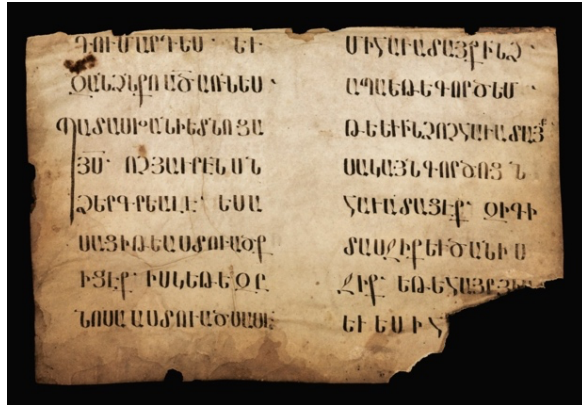 ԴՈՒՄԱՐԴԵՍ· ԵՒ
ԶԱՆՁՆՔՈԱԾԱՌՆԵՍ·
ՊԱՏԱՍԽԱՆԻԵՏՆՈՑԱ
ՅՍ· ՈՉՅԱՒՐԷՆՍՆ
ՁԵՐԳՐԵԱԼԷ· ԵՍԱ
ՍԱՑԻԹԵԱՍՏՈՒԱԾՔ
ԻՑԷՔ· ԻՍԿԵԹԵ
ՆՈՍԱԱՍՏՈՒԱԾՍԱՍԷ
ՄԻՀԱՒԱՏԱՅՔԻՆՁ·
ԱՊԱԵԹԵԳՈՐԾԵՄ·
ԹԵԵՒԻՆՁՈՉՀԱՒԱՏԱՅՔ
ՍԱԿԱՅՆԳՈՐԾՈՑՆ
ՀԱՒԱՏԱՑԷՔ· ԶԻԳԻ
ՏԱՍՋԻՔԵՒԾԱՆԻՍ
ՋԻՔ· ԵԹԵՀԱՅՐ
ԵՒԵՍԻՀ